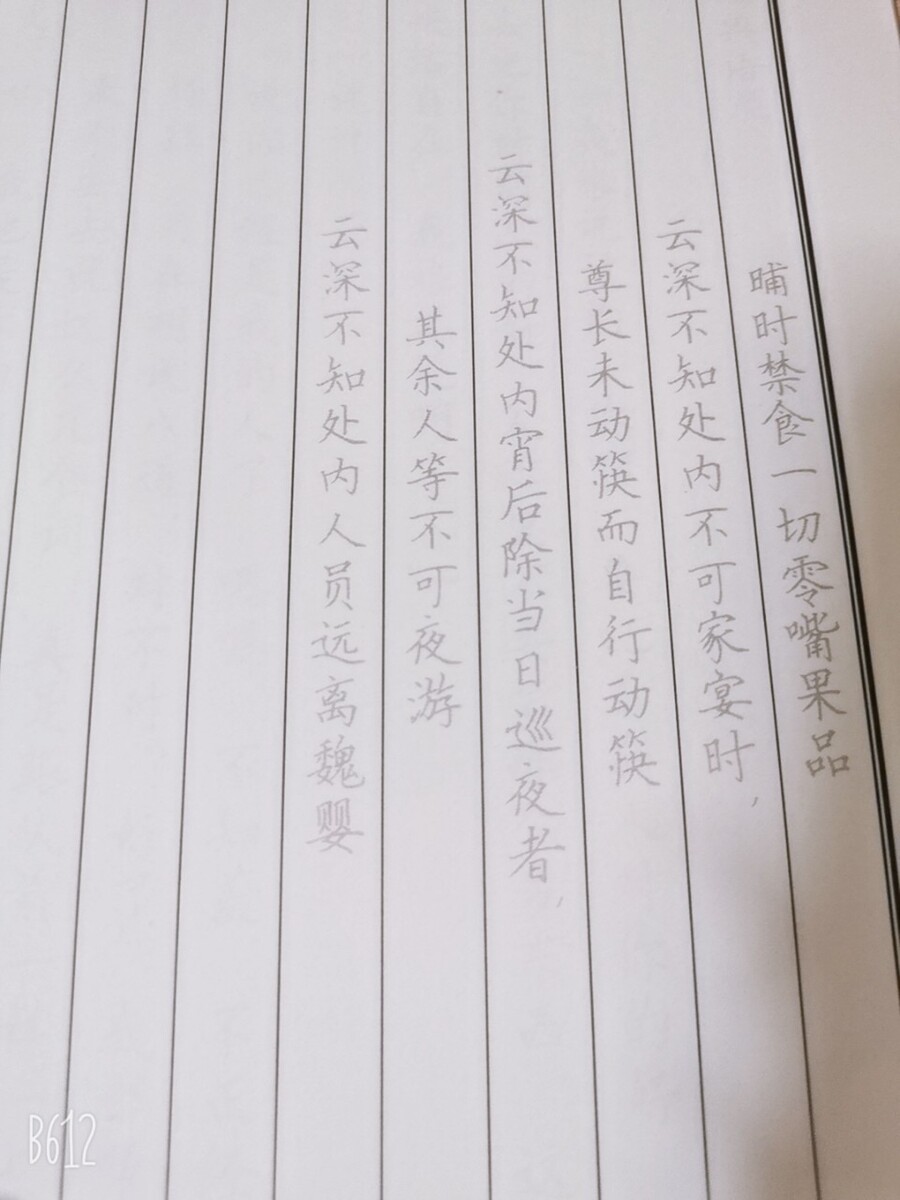 晡时禁食一切零嘴果品
云深不知处内不可家宴时,
尊长未动筷而自行动筷
云深不知处内宵后除当日巡夜者,
其余人等不可夜游
云深不知处内人员远离魏婴
B612